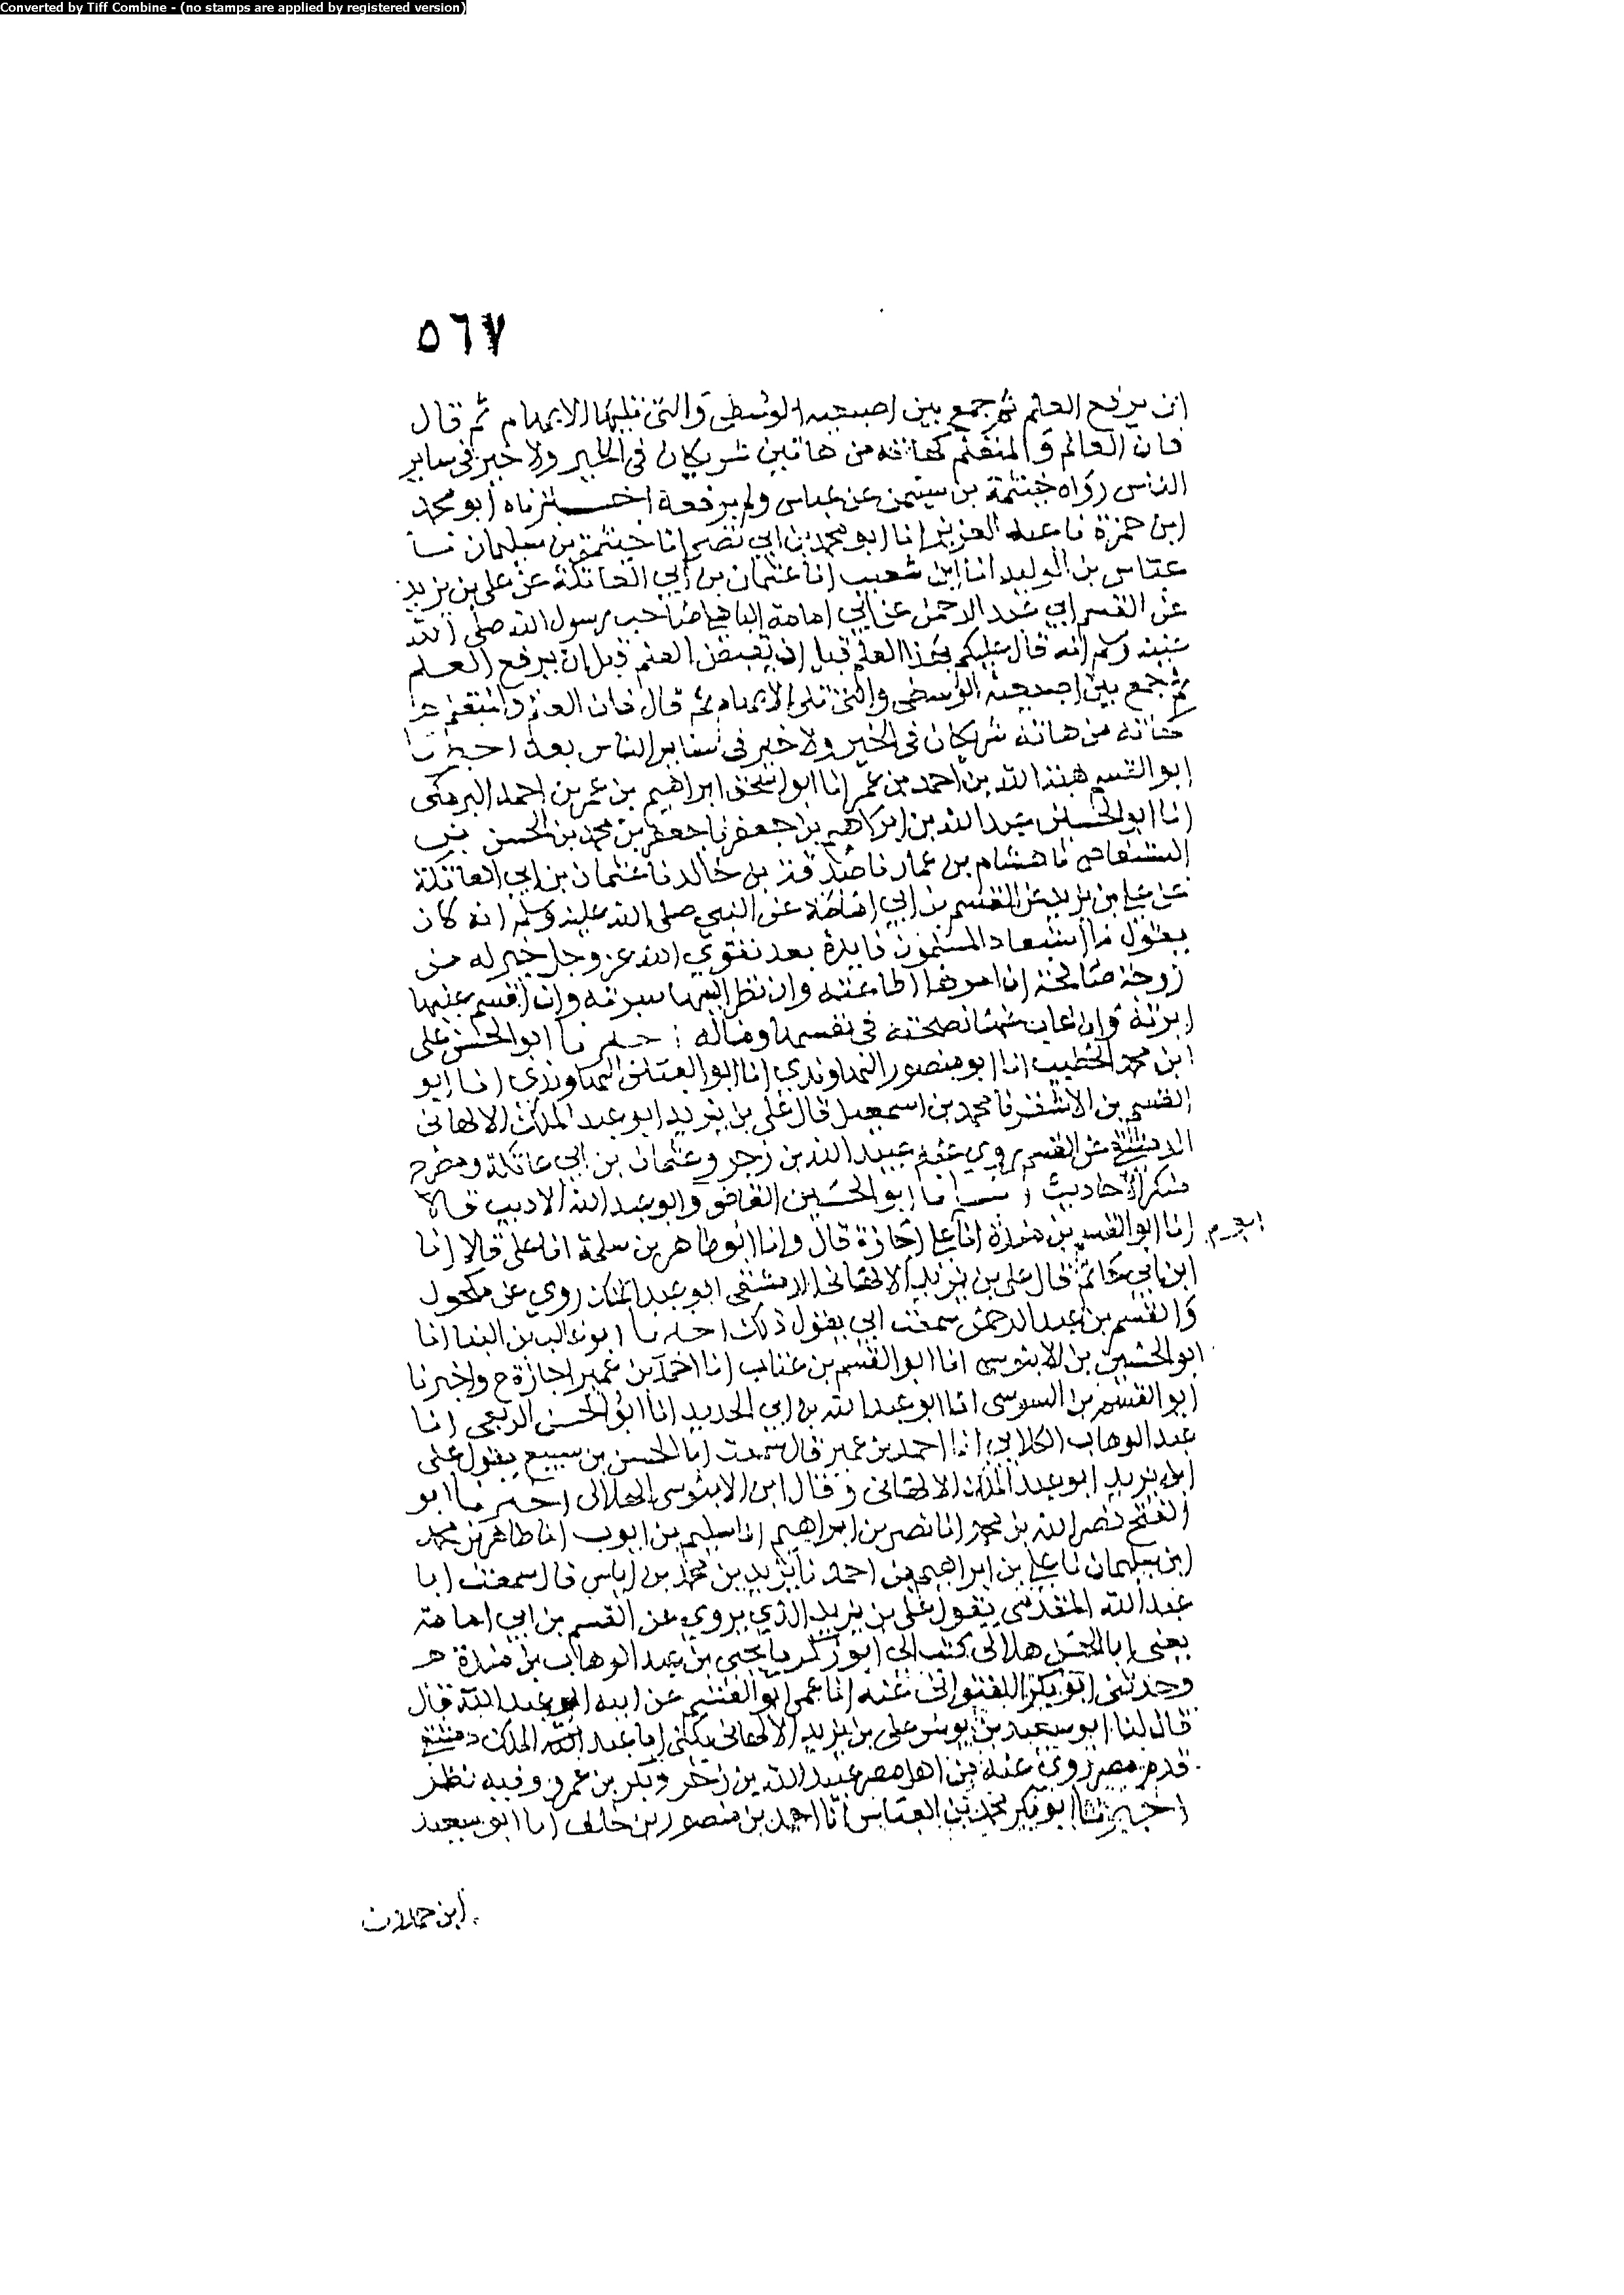 Converted by Tiff Combine - (no stamps are applied by registered version)
٥٦٧
ان يرفع العلم ثم جمع بين اصبعيه الوسطى والتي تليها الابهام ثم قال
فان العالم والمتعلم كهاته من هاتين شريكان في الخير ولا خير في ساير
الناس رواه خيثمة بن سليمن عن عباس ولم يرفعه اخبرناه ابو محمد
ابن حمزة نا عبد العزيز انا ابو محمد بن ابي نصر انا خيثمة بن سليمان نا
عباس بن الوليد انا ابن شعيب انا عثمان بن ابي العاتكة عن علي بن يزيد
عن القسم ابي عبد الرحمن عن ابي امامة الباهلي صاحب رسول الله صلى الله
عليه وسلم انه قال عليكم بهذا العلم قبل ان يقبض العلم وقبل ان يرفع العلم
ثم جمع بين اصبعيه الوسطى والتي تلي الابهام ثم قال فان العالم والمتعلم
كهاته من هاته شريكان في الخير ولا خير في ساير الناس بعد اخبرنا
ابو القسم هبة الله بن احمد بن عمر انا ابو اسحق ابراهيم بن عمر بن احمد البرمكي
انا ابو الحسين عبد الله بن ابراهيم بن جعفر نا جعفر بن محمد بن الحسن بن
المستفاض نا هشام بن عمار نا صدقة بن خالد نا عثمان بن ابي العاتكة
عن علي بن يزيد عن القسم بن ابي امامة عن النبي صلى الله عليه وسلم انه كان
يقول ما استفاد المسلمون فايدة بعد تقوى الله عز وجل خير له من
زوجة صالحة ان امرها اطاعته وان نظر اليها سرته وان اقسم عليها
ابرته وان غاب عنها نصحته في نفسها وماله اخبرنا ابو الحسن علي
ابن محمد الخطيب انا ابو منصور النهاوندي انا ابو العباس النهاوندي انا ابو
القسم بن الاشقر نا محمد بن اسمعيل قال علي بن يزيد ابو عبد الملك الالهاني
الدمشقي عن القسم روى عنه عبيد الله بن زحر وعثمان بن ابي عاتكة ومطرح
منكر الاحاديث انبانا ابو الحسين القاضي وابو عبد الله الاديب قالا
انا ابو القسم بن مندة انا علي اجازة قال وانا ابو طاهر بن سلمة انا علي قالا انا
ابن ابي حاتم قال علي بن يزيد الالهاني الدمشقي ابو عبد الملك روى عن مكحول
والقسم بن عبد الرحمن سمعت ابي يقول ذلك اخبرنا ابو غالب بن البنا انا
ابو الحسين بن الابنوسي انا ابو القسم بن عتاب انا احمد بن عمير اجازة ح واخبرنا
ابو القسم بن السوسي انا ابو عبد الله بن ابي الحديد انا ابو الحسن الربعي انا
عبد الوهاب الكلابي انا احمد بن عمير قال سمعت ابا الحسن بن سميع يقول علي
ابن يزيد ابو عبد الملك الالهاني وقال ابن الابنوسي الهلالي اخبرنا ابو
الفتح نصر الله بن محمد انا نصر بن ابراهيم انا سليم بن ايوب انا طاهر بن محمد
ابن سليمان نا علي بن ابراهيم بن احمد نا يزيد بن محمد بن اياس قال سمعت ابا
عبد الله المقدمي يقول علي بن يزيد الذي يروي عن القسم بن ابي امامة
يعني ابا الحسن هلالي كتب الي ابو زكريا يحيى بن عبد الوهاب بن مندة
وحدثني ابو بكر اللفتواني عنه انا عمي ابو القسم عن ابيه ابو عبد الله قال
قال لنا ابو سعيد بن يونس علي بن يزيد الالهاني يكنى ابا عبد الملك دمشقي
قدم مصر روى عنه من اهل مصر عبيد الله بن زحر وبكر بن عمرو وفيه نظر
اخبرنا ابو بكر محمد بن العباس انا احمد بن منصور بن خلف انا ابو سعيد
ابن حمدون